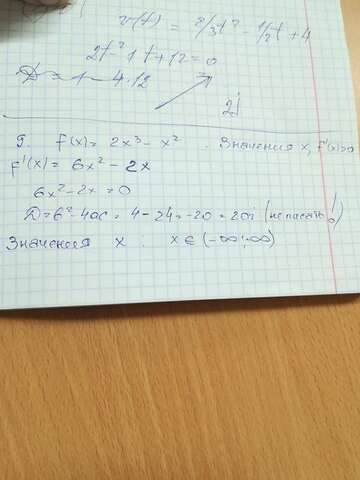 v(t) = 2/3t³ - 1/2t + 4
2t² 1t + 12 = 0
D = 1 - 4·12
2i
9. f(x) = 2x³ - x². Значения x, f'(x)>0
f'(x) = 6x² - 2x
6x² - 2x = 0
D = b² - 4ac = 4 - 24 = -20 = 20i (не писать!)
Значения x. x ∈ (-∞;∞)